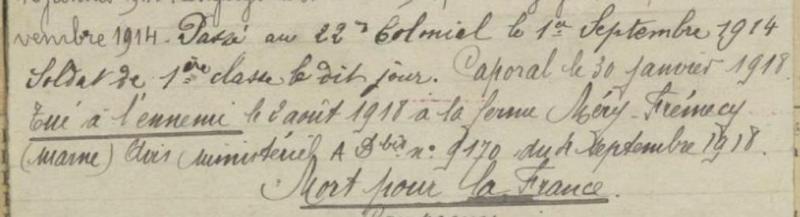 vembre 1914. Passé au 22e Colonial le 1er Septembre 1914
Soldat de 1ère classe le dit jour. Caporal le 30 janvier 1918.
Tué à l'ennemi le 2 août 1918 à la ferme Méry-Frémecy
(Marne) Avis ministériel A D bis n° 9170 du 4 septembre 1918.
Mort pour la France.